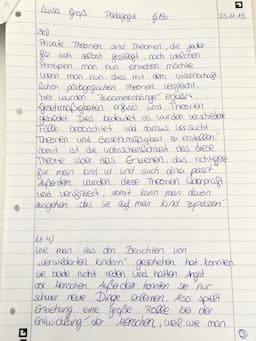 Luisa Groß Pädagogik 25.11.15
3b)
Private Theorien sind Theorien, die jeder
für sich selbst festlegt, nach welchen
Prinzipien man nun erziehen möchte.
Wenn man nun dies mit dem wissenschaft-
lichen pädagogischen Theorien vergleicht,
hier wurden "Zusammenhänge" erfasst
Gesetzmäßigkeiten erfasst und Theorien
gebildet. Dies bedeutet es wurden verschiedene
Fälle beobachtet und daraus versucht
Theorien und Gesetzmäßigkeit zu erstellen.
Somit ist die wahrscheinlichkeit das diese
Theorie über das Erziehen, das richtige
für mein Kind ist und auch dazu passt.
Außerdem wurden diese Theorien überprüft
und verifiziert, somit kann man davon
ausgehen, das sie auf mein Kind zupassen
4)
Wie man aus den Berichten von
"verwilderten Kindern" gesehen hat, konnten
sie beide nicht reden und hatten Angst
vor Menschen. Außerdem konnten sie nur
schwer neue Dinge erlernen. Also spielt
Erziehung eine große Rolle bei der
Entwicklung der Menschen, weil wie man